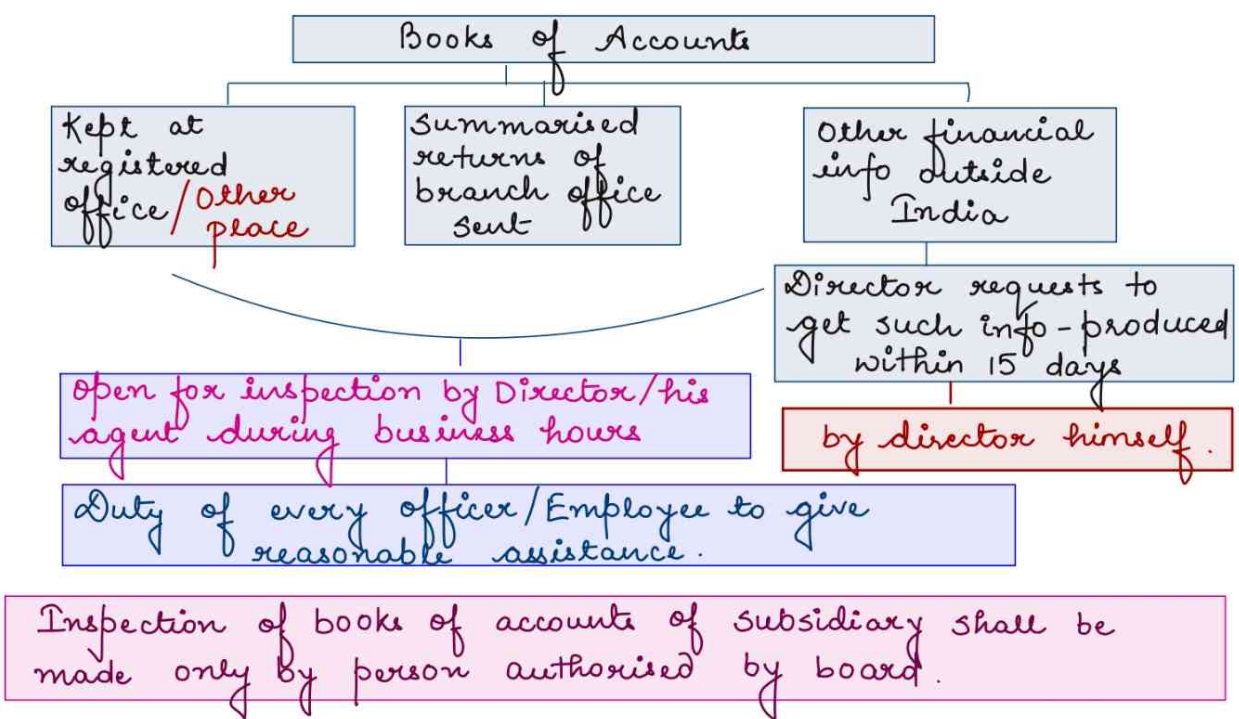 Books of Accounts
Kept at
registered
office/Other
place
Summarised
returns of
branch office
sent
Other financial
info outside
India
Director requests to
get such info-produced
within 15 days
by director himself.
Open for inspection by Director/his
agent during business hours
Duty of every officer/Employee to give
reasonable assistance.
Inspection of books of accounts of subsidiary shall be
made only by person authorised by board.